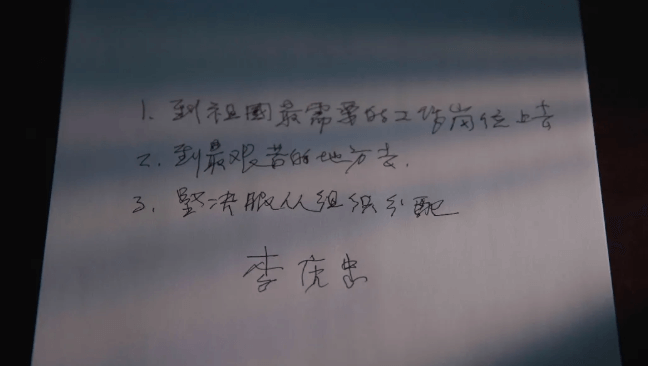 1. 到祖國最需要的工作岗位上去
2. 到最艰苦的地方去.
3. 堅决服从组织分配
李庆忠